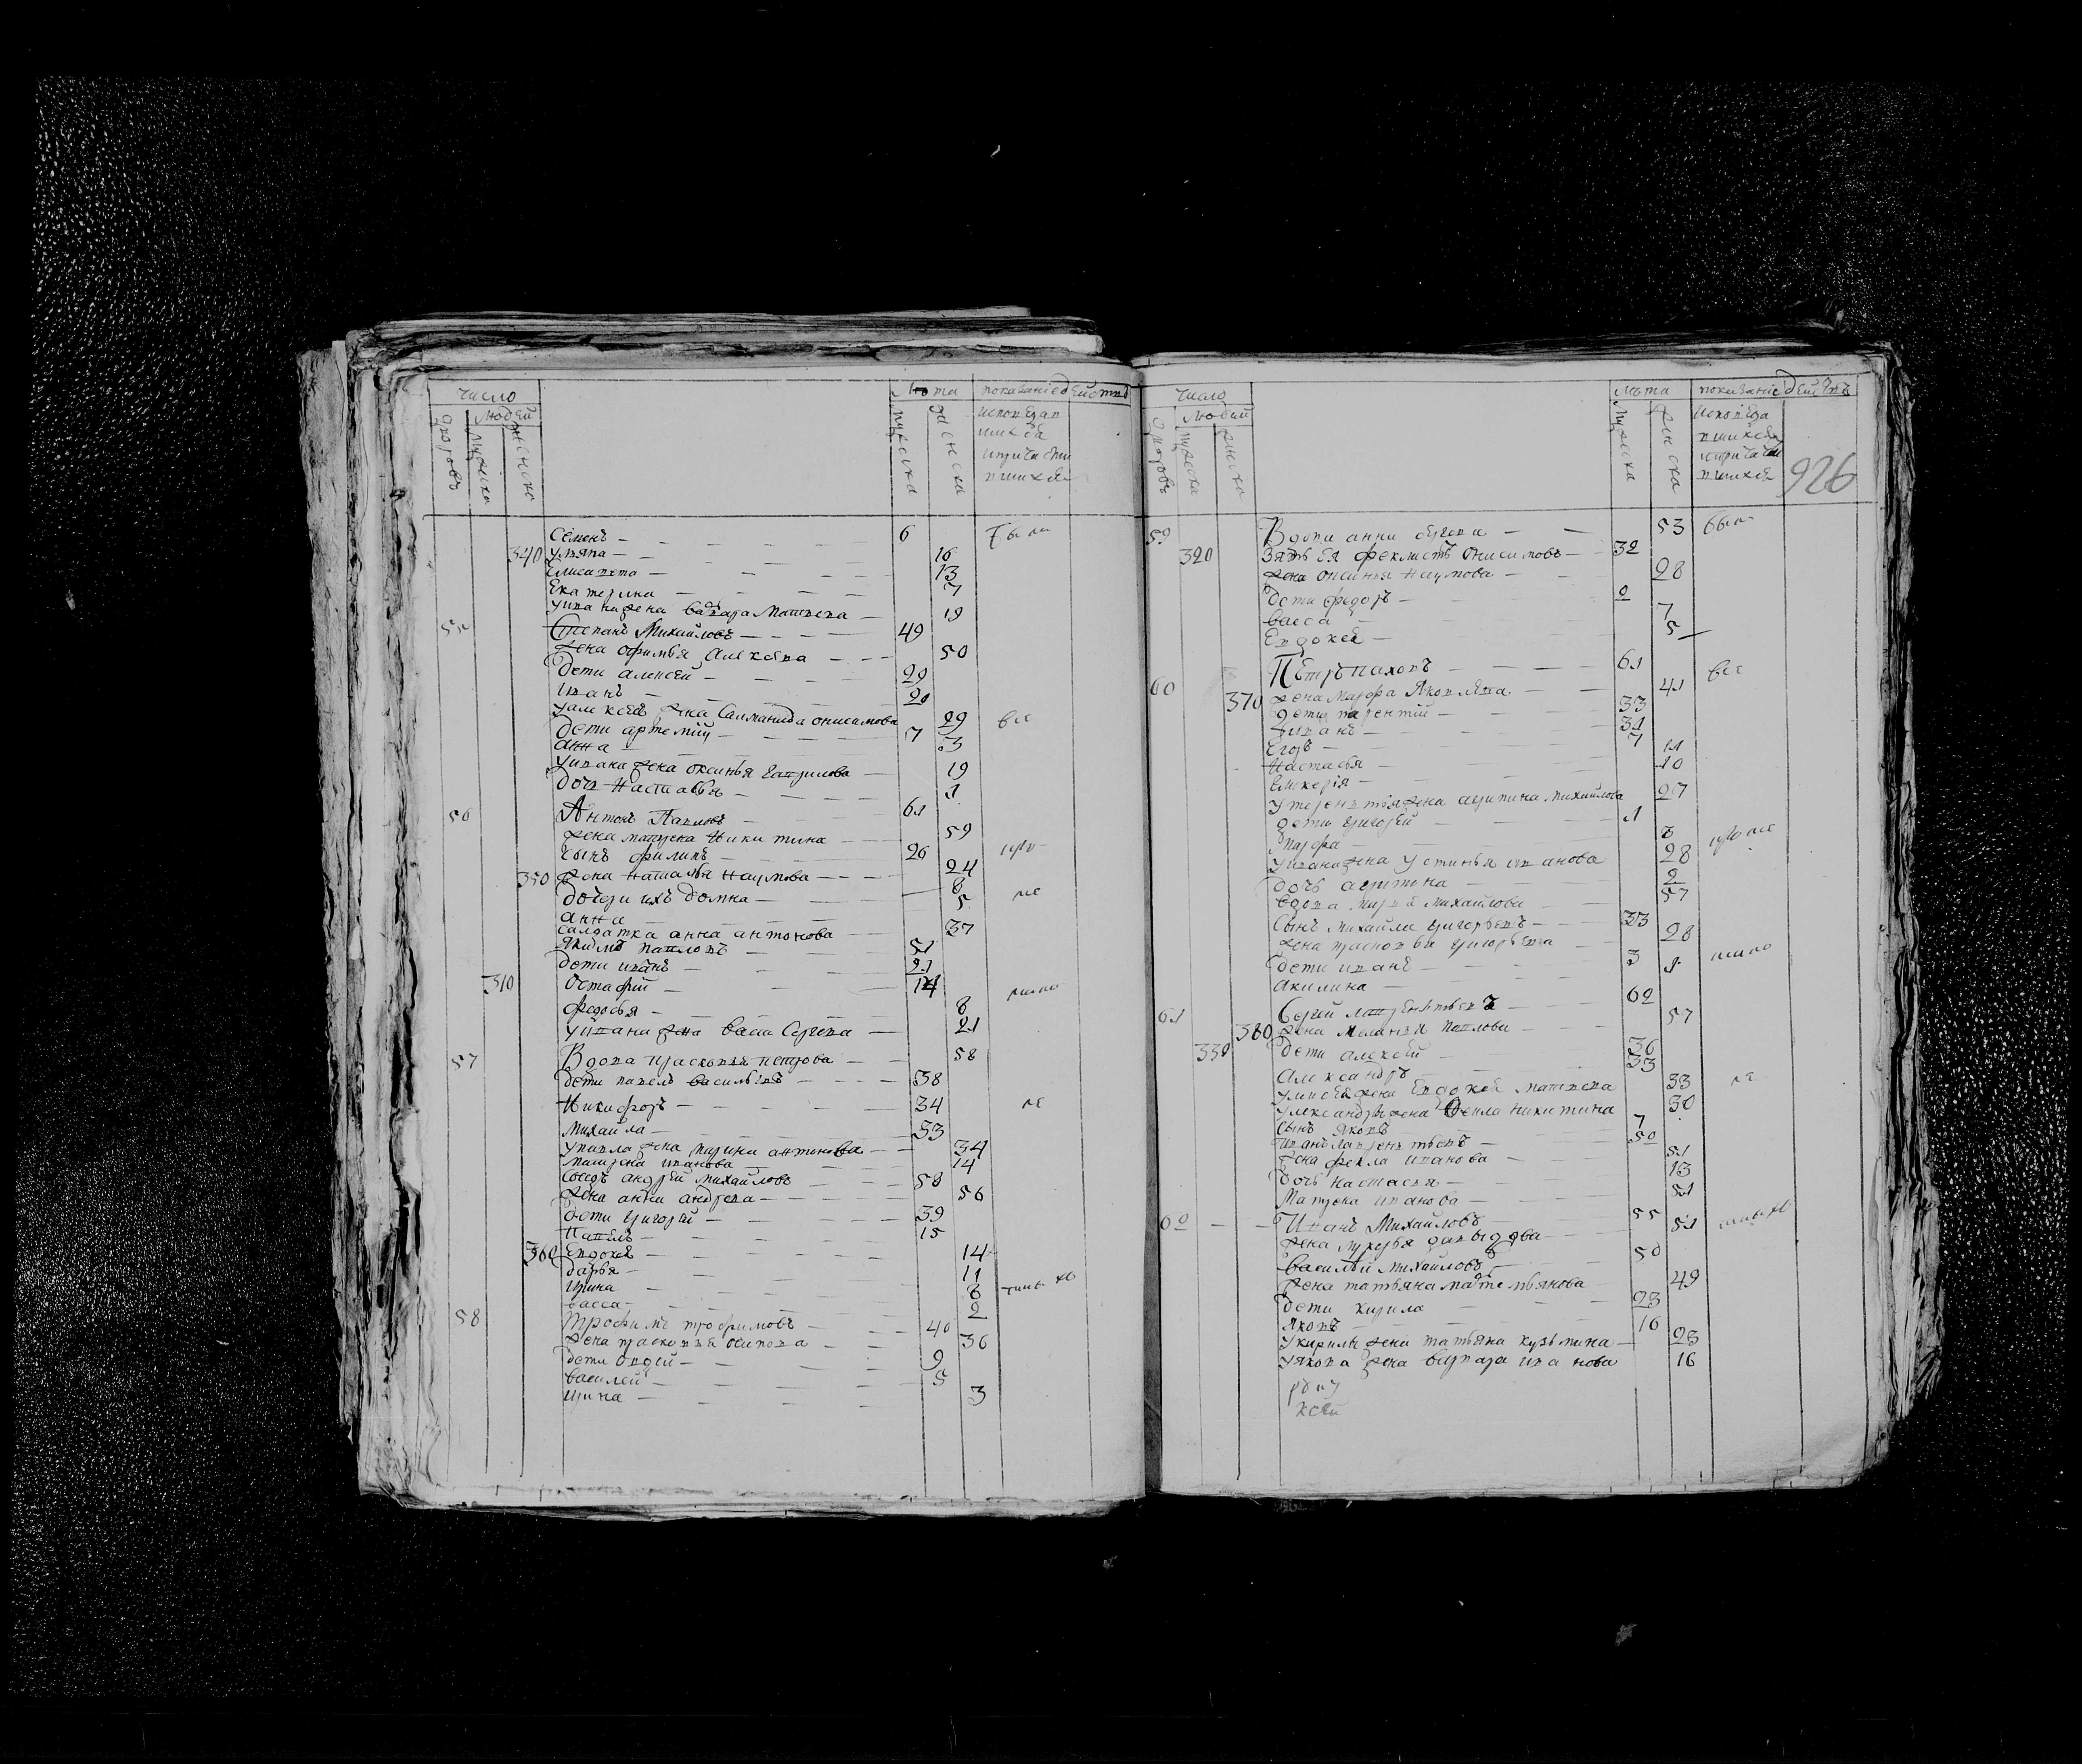 число
людей
дворовъ
мужеска
женска
лѣта
мужеска
женска
показаніе действ
исповедап
шихся
и прича сти
пшихся
Семенъ 6 были
340 Ульяна 16
Елисавета 13
Екатерина 7
у ивана жена варвара Матвева 19
55 Степанъ Михайловъ 49
жена офимья Алексѣва 50
дети алексей 29
иванъ 20
у алексея жена Саламанида онисимова 29 все
дети артемий 7
анна 3
у ивана жена оксинья гаврилова 19
дочь Настасья 1
56 Антонъ Павловъ 61
жена матрена Никитина 59
сынъ филипъ 26
350 жена наталья Наумова 24
дочери ихъ домна 8 ле
анна 5
салдатка анна антонова 37
якимъ павловъ 51
дети иванъ 21
310 Остафий 14
федосья 8
у ивана жена васа Сергева 21
57 Вдова прасковья петрова 58
дети павелъ васильевъ 38
Никифоръ 34 ле
Михайла 33
у павла жена марина антонова 34
матрена иванова 14
соседъ андрей михайловъ 58
жена анна андрева 56
дети григорей 39
Павелъ 15
360 Евдокея 14
дарья 11
ирина 8
васса 2
58 Трофимъ трофимовъ 40
жена прасковья осипова 36
дети авдей 9
василей 5
ирина 3
число
людей
дворовъ
мужеска
женска
лѣта
мужеска
женска
показаніе действъ
исповеда
пшихся
и прича сти
пшихся
926
59 Вдова анна сергева 53 были
320 Зять ея феклистъ Онисимовъ 32
жена оксинья Наумова 28
дети федоръ 2
васса 7
Евдокея 5
60 Пётръ пахомъ 61 все
370 жена марфа Яковлева 41
дети терентий 33
иванъ 31
Егоръ 7
Настасья 11
Гликерія 10
у терентья жена агрипина михайлова 27
дети григорей 1
марфа 8
у ивана жена устинья иванова 28
дочь агрипина 2
вдова марья михайлова 57
сынъ михайла григорьевъ 33
жена прасковья григорьева 28
дети иванъ 3
акилина 1
61 Сергей лаврентьевъ 62
380 жена меланья павлова 57
330 дети алексей 36
Александръ 33
у алексея жена Евдокея матвева 33 ле
у александра жена фекла никитина 30
сынъ яковъ 7
иванъ лаврентьевъ 50
жена фекла иванова 51
дочь настасья 13
Матрена иванова 51
62 Иванъ Михайловъ 55
жена лукерья давыдова 51
василий михайловъ 50
жена татьяна мартемьянова 49
дети кирила 23
яковъ 16
у кирилы жена татьяна кузьмина 23
у якова жена варвара иванова 16